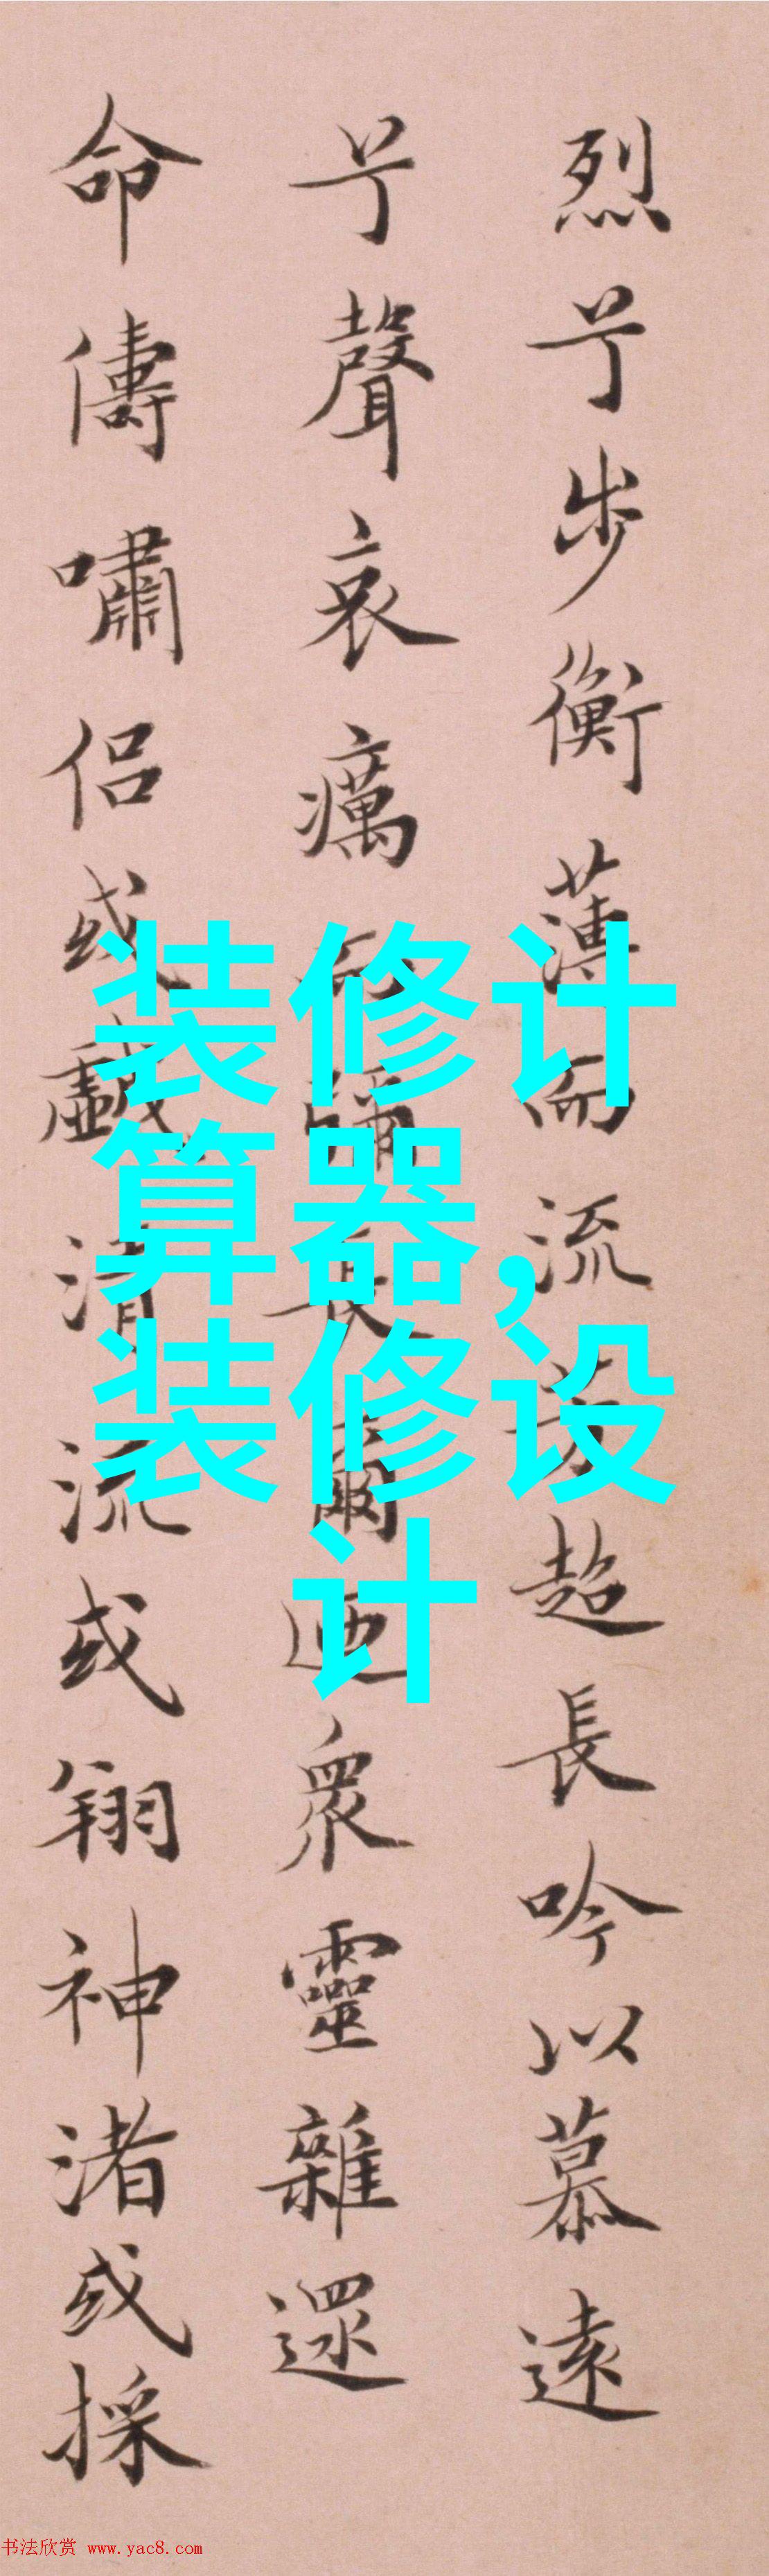 烈兮步衡薄而流芳超長吟以慕遠
兮聲哀癘而彌長爾迺眾靈雜遝
命儔嘯侶或戲清流或翔神渚或採
装修计
算器,
装修设
计
书法欣赏 www.yac8.com